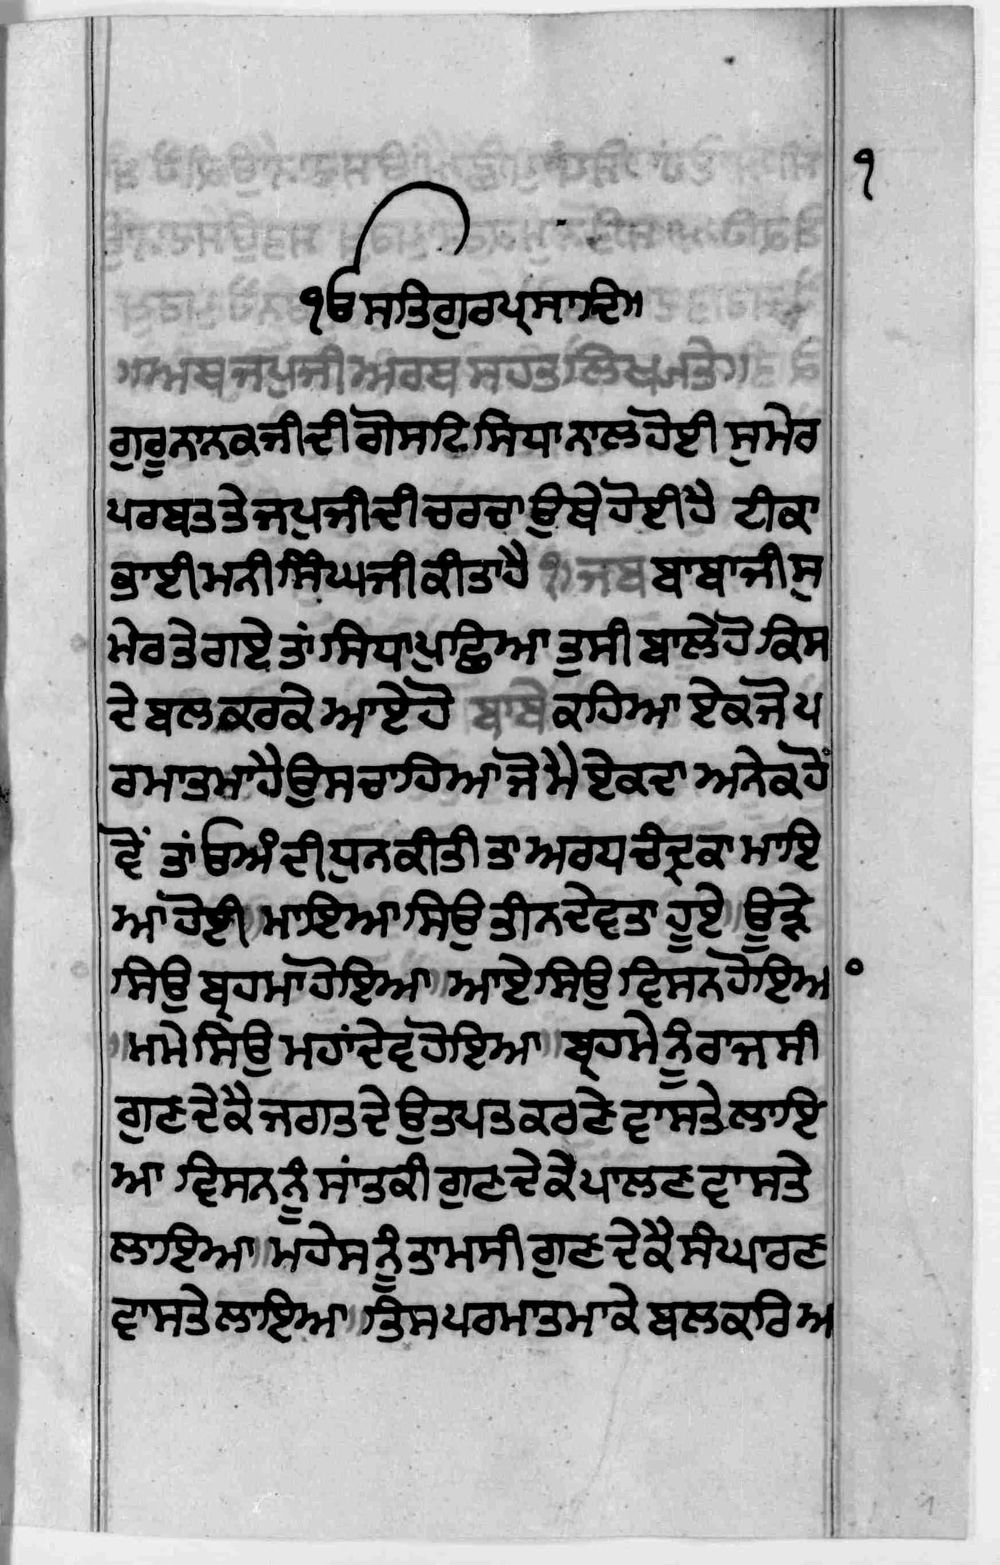 ੧
ੴ ਸਤਿਗੁਰਪ੍ਰਸਾਦਿ॥
॥ਅਥ ਜਪੁਜੀ ਅਰਥ ਸਹਤ ਲਿਖਯਤੇ॥
ਗੁਰੂ ਨਾਨਕ ਜੀ ਦੀ ਗੋਸਟਿ ਸਿਧਾ ਨਾਲ ਹੋਈ ਸੁਮੇਰ
ਪਰਬਤ ਤੇ ਜਪੁਜੀ ਦੀ ਚਰਚਾ ਉਥੇ ਹੋਈ ਹੈ ਟੀਕਾ
ਭਾਈ ਮਨੀ ਸਿੰਘ ਜੀ ਕੀਤਾ ਹੈ ੧) ਜਬ ਬਾਬਾ ਜੀ ਸੁ
ਮੇਰ ਤੇ ਗਏ ਤਾਂ ਸਿਧਾ ਪੁਛਿਆ ਤੁਸੀ ਬਾਲੇ ਹੋ ਕਿਸ
ਦੇ ਬਲ ਕਰਕੇ ਆਏ ਹੋ ਬਾਬੇ ਕਹਿਆ ਏਕ ਜੋ ਪ
ਰਮਾਤਮਾ ਹੈ ਉਸ ਚਾਹਿਆ ਜੋ ਮੈ ਏਕ ਦਾ ਅਨੇਕ ਹੋਂ
ਵੋਂ ਤਾਂ ਓਅੰ ਦੀ ਧੁਨ ਕੀਤੀ ਤਾ ਅਰਧ ਚੰਦ੍ਰਕਾ ਮਾਇ
ਆ ਹੋਈ ਮਾਇਆ ਸਿਉ ਤੀਨ ਦੇਵਤਾ ਹੂਏ ਊੜੇ
ਸਿਉ ਬ੍ਰਹਮਾ ਹੋਇਆ ਆਏ ਸਿਉ ਵਿਸਨ ਹੋਇਅ
॥ਮਮੇ ਸਿਉ ਮਹਾਂਦੇਵ ਹੋਇਆ ॥ਬ੍ਰਹਮੇ ਨੂੰ ਰਾਜਸੀ
ਗੁਣ ਦੇ ਕੈ ਜਗਤ ਦੇ ਉਤਪਤ ਕਰਣੇ ਵਾਸਤੇ ਲਾਇ
ਆ ਵਿਸਨ ਨੂੰ ਸਾਂਤਕੀ ਗੁਣ ਦੇ ਕੈ ਪਾਲਣ ਵਾਸਤੇ
ਲਾਇਆ॥ ਮਹੇਸ ਨੂੰ ਤਾਮਸੀ ਗੁਣ ਦੇ ਕੈ ਸੰਘਾਰਣ
ਵਾਸਤੇ ਲਾਇਆ॥ ਤਿਸ ਪਰਮਾਤਮਾ ਕੇ ਬਲ ਕਰਿ ਅ